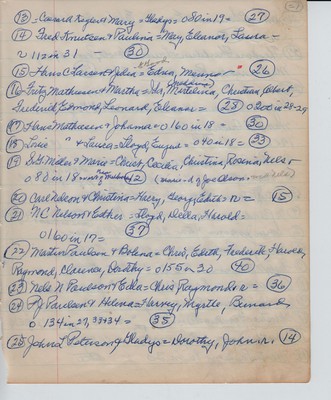 (13) - Conard & Mary = Gladys = 080 in 19 = (27)
(14) Fred Knutson & Paulina = May, Eleanor, Laura -
112 in 31 - (30)
(15) Hans C Larson & = Edna, (26)
(16) Fritz Mathiesen & Martha = Martelvina, Christian, Albert,
Frederick, Edmond, Leonard, Eleanor = (28) 0200 in 28-29
(17) Hans Mathiesen & Johanna = 0160 in 18 = (30)
(18) " & Laura = Lloyd, Eugene = 040 in 18 = (33)
(19) Moles & Marie = Christ, Cecelia, Christina, Rosena, Nels -
080 in 18 (12) (Marie - d of Joe Olson.
(20) Carl Nelson & Christina = Harry, George, Edith = R = (15)
(21) N C Nelson & Esther = Floyd, Della, Harold =
0160 in 17 = (37)
(22) Martin Paulson & Bolena = Chris, Edith, Frederick, Harold,
Raymond, Clarence, Dorothy = 0155 in 20 (40)
(23) Nels N Paulson & Eda = Chris, Raymond = R = (36)
(24) P J Paulson & Helena = Harvey, Myrtle, Bernard
0 134 in 27, 33+34 = (35)
(25) John L Peterson & Gladys = Dorothy, John = R. (14)